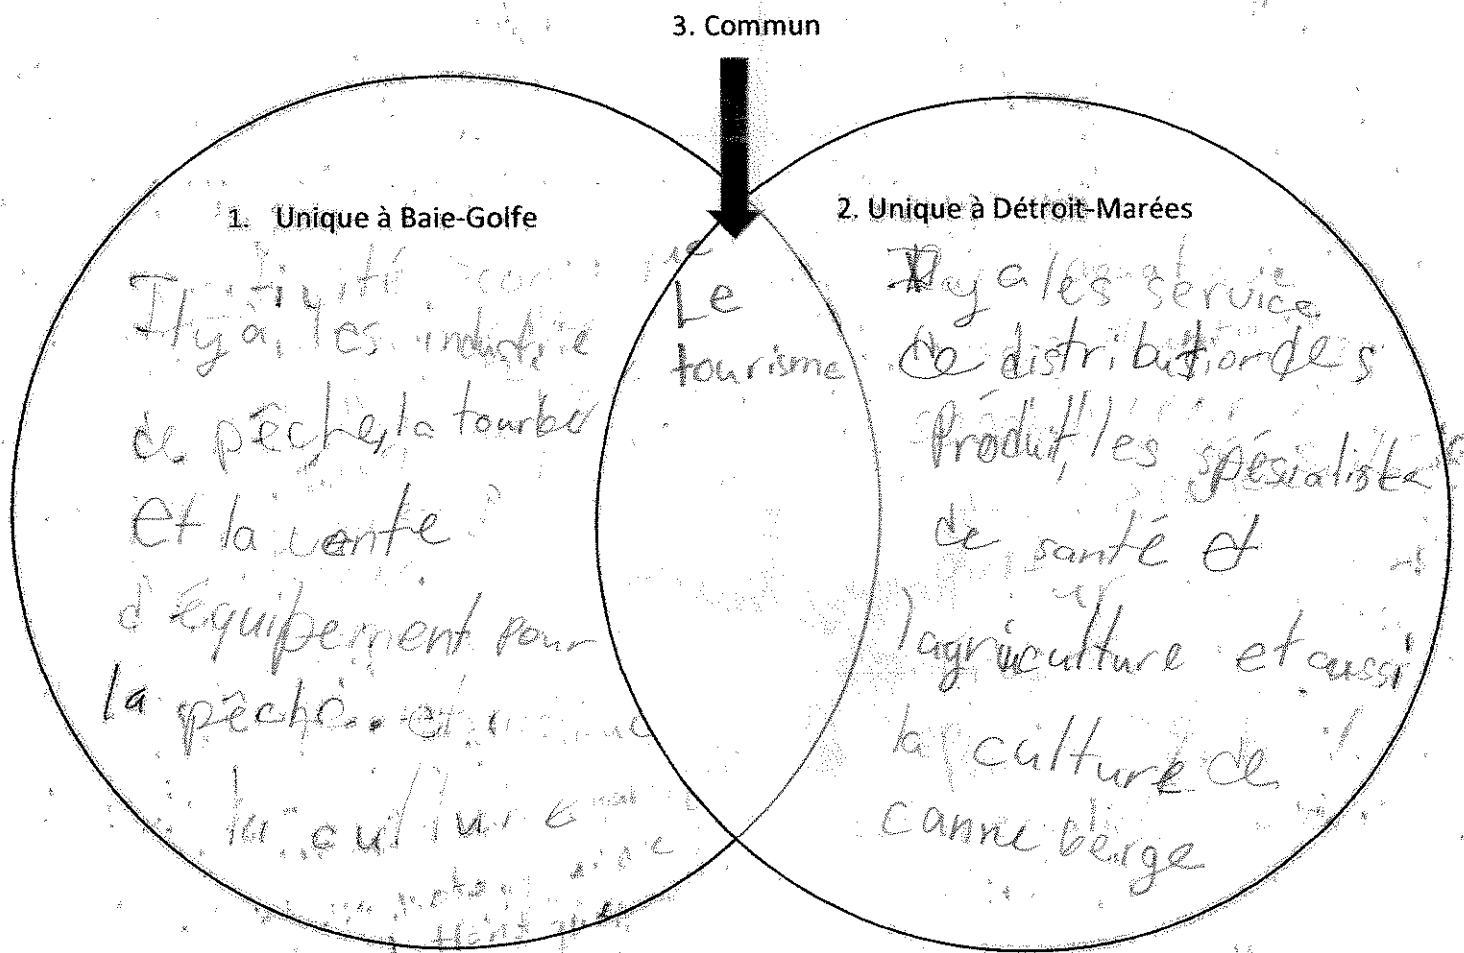 3. Commun
1. Unique à Baie-Golfe
Il y a, les industrie
de pêche, la tourbe
et la vente
d'équipement pour
la pêche.
Le
tourisme
2. Unique à Détroit-Marées
Il y a les service
de distribution des
Produit, les spésialiste
de santé et
l'agriuculture et aussi
la culture de
canne berge